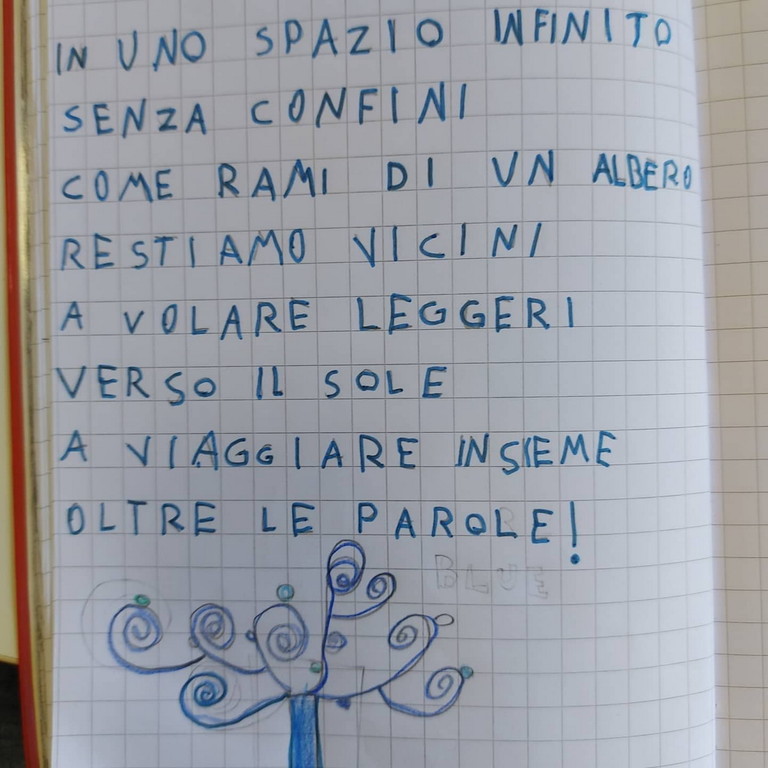 IN UNO SPAZIO INFINITO
SENZA CONFINI
COME RAMI DI UN ALBERO
RESTIAMO VICINI
A VOLARE LEGGERI
VERSO IL SOLE
A VIAGGIARE INSIEME
OLTRE LE PAROLE!
BLUE